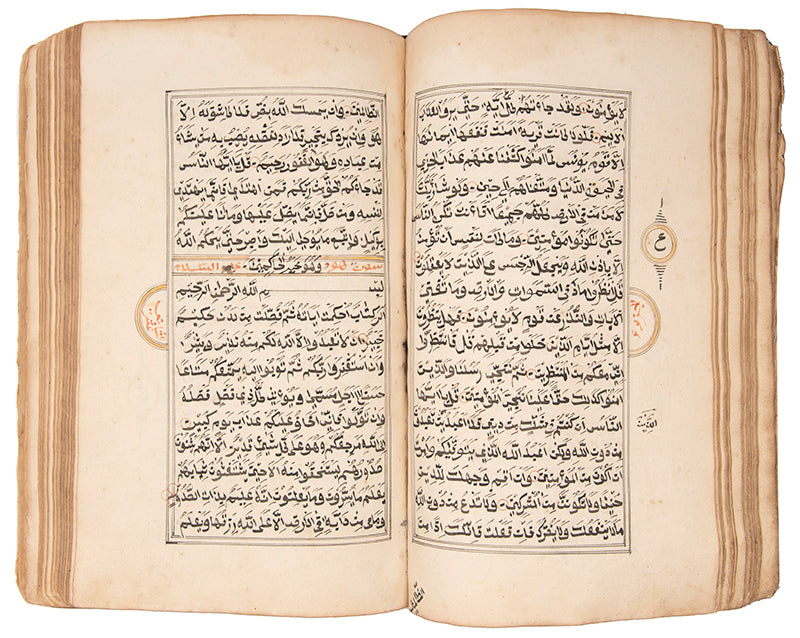 لا يؤمنون ولو جاءتهم كل آية حتى يروا العذاب
الاليم فلولا كانت قرية امنت فنفعها ايمانها
الا قوم يونس لما امنوا كشفنا عنهم عذاب الخزي
في الحيوة الدنيا ومتعناهم الى حين ولو شاء ربك
لآمن من في الارض كلهم جميعا افانت تكره الناس
حتى يكونوا مؤمنين وما كان لنفس ان تؤمن
الا باذن الله ويجعل الرجس على الذين لا يعقلون
قل انظروا ماذا في السموات والارض وما تغنى
الايات والنذر عن قوم لا يؤمنون فهل ينتظرون
الا مثل ايام الذين خلوا من قبلهم قل فانتظروا
اني معكم من المنتظرين ثم ننجي رسلنا والذين
امنوا كذلك حقا علينا ننج المؤمنين قل يا ايها
الناس ان كنتم في شك من ديني فلا اعبد الذين تعبدون
من دون الله ولكن اعبد الله الذي يتوفيكم وامرت
ان اكون من المؤمنين وان اقم وجهك للدين
حنيفا ولا تكونن من المشركين ولا تدع من دون الله
ما لا ينفعك ولا يضرك فان فعلت فانك اذا من
الظالمين
ع
الذين
الظالمين وان يمسسك الله بضر فلا كاشف له الا
هو وان يردك بخير فلا راد لفضله يصيب به من يشاء
من عباده وهو الغفور الرحيم قل يا ايها الناس
قد جاءكم الحق من ربكم فمن اهتدى فانما يهتدي
لنفسه ومن ضل فانما يضل عليها وما انا عليكم
بوكيل واتبع ما يوحى اليك واصبر حتى يحكم الله
سورة هود وهو خير الحاكمين عليه السلام
بسم الله الرحمن الرحيم
الر كتاب احكمت اياته ثم فصلت من لدن حكيم
خبير ان لا تعبدوا الا الله انني لكم منه نذير وبشير
وان استغفروا ربكم ثم توبوا اليه يمتعكم متاعا
حسنا الى اجل مسمى ويؤت كل ذي فضل فضله
وان تولوا فاني اخاف عليكم عذاب يوم كبير
الى الله مرجعكم وهو على كل شيئ قدير الا انهم يثنون
صدورهم ليستخفوا منه الا حين يستغشون ثيابهم
يعلم ما يسرون وما يعلنون انه عليم بذات الصدور
وما من دابة في الارض الا على الله رزقها ويعلم